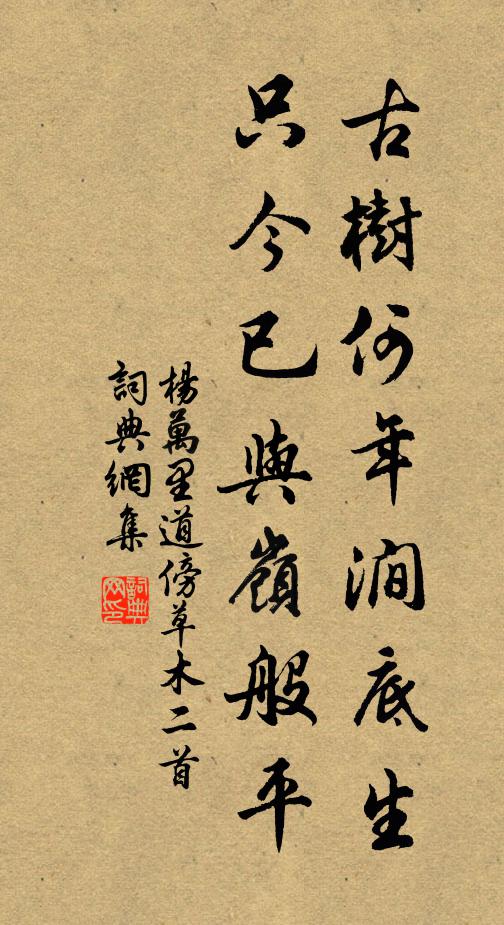 古樹何年澗底生
只今已與嶺般平
楊萬里道傍草木二首
詞典網集
詞典網印